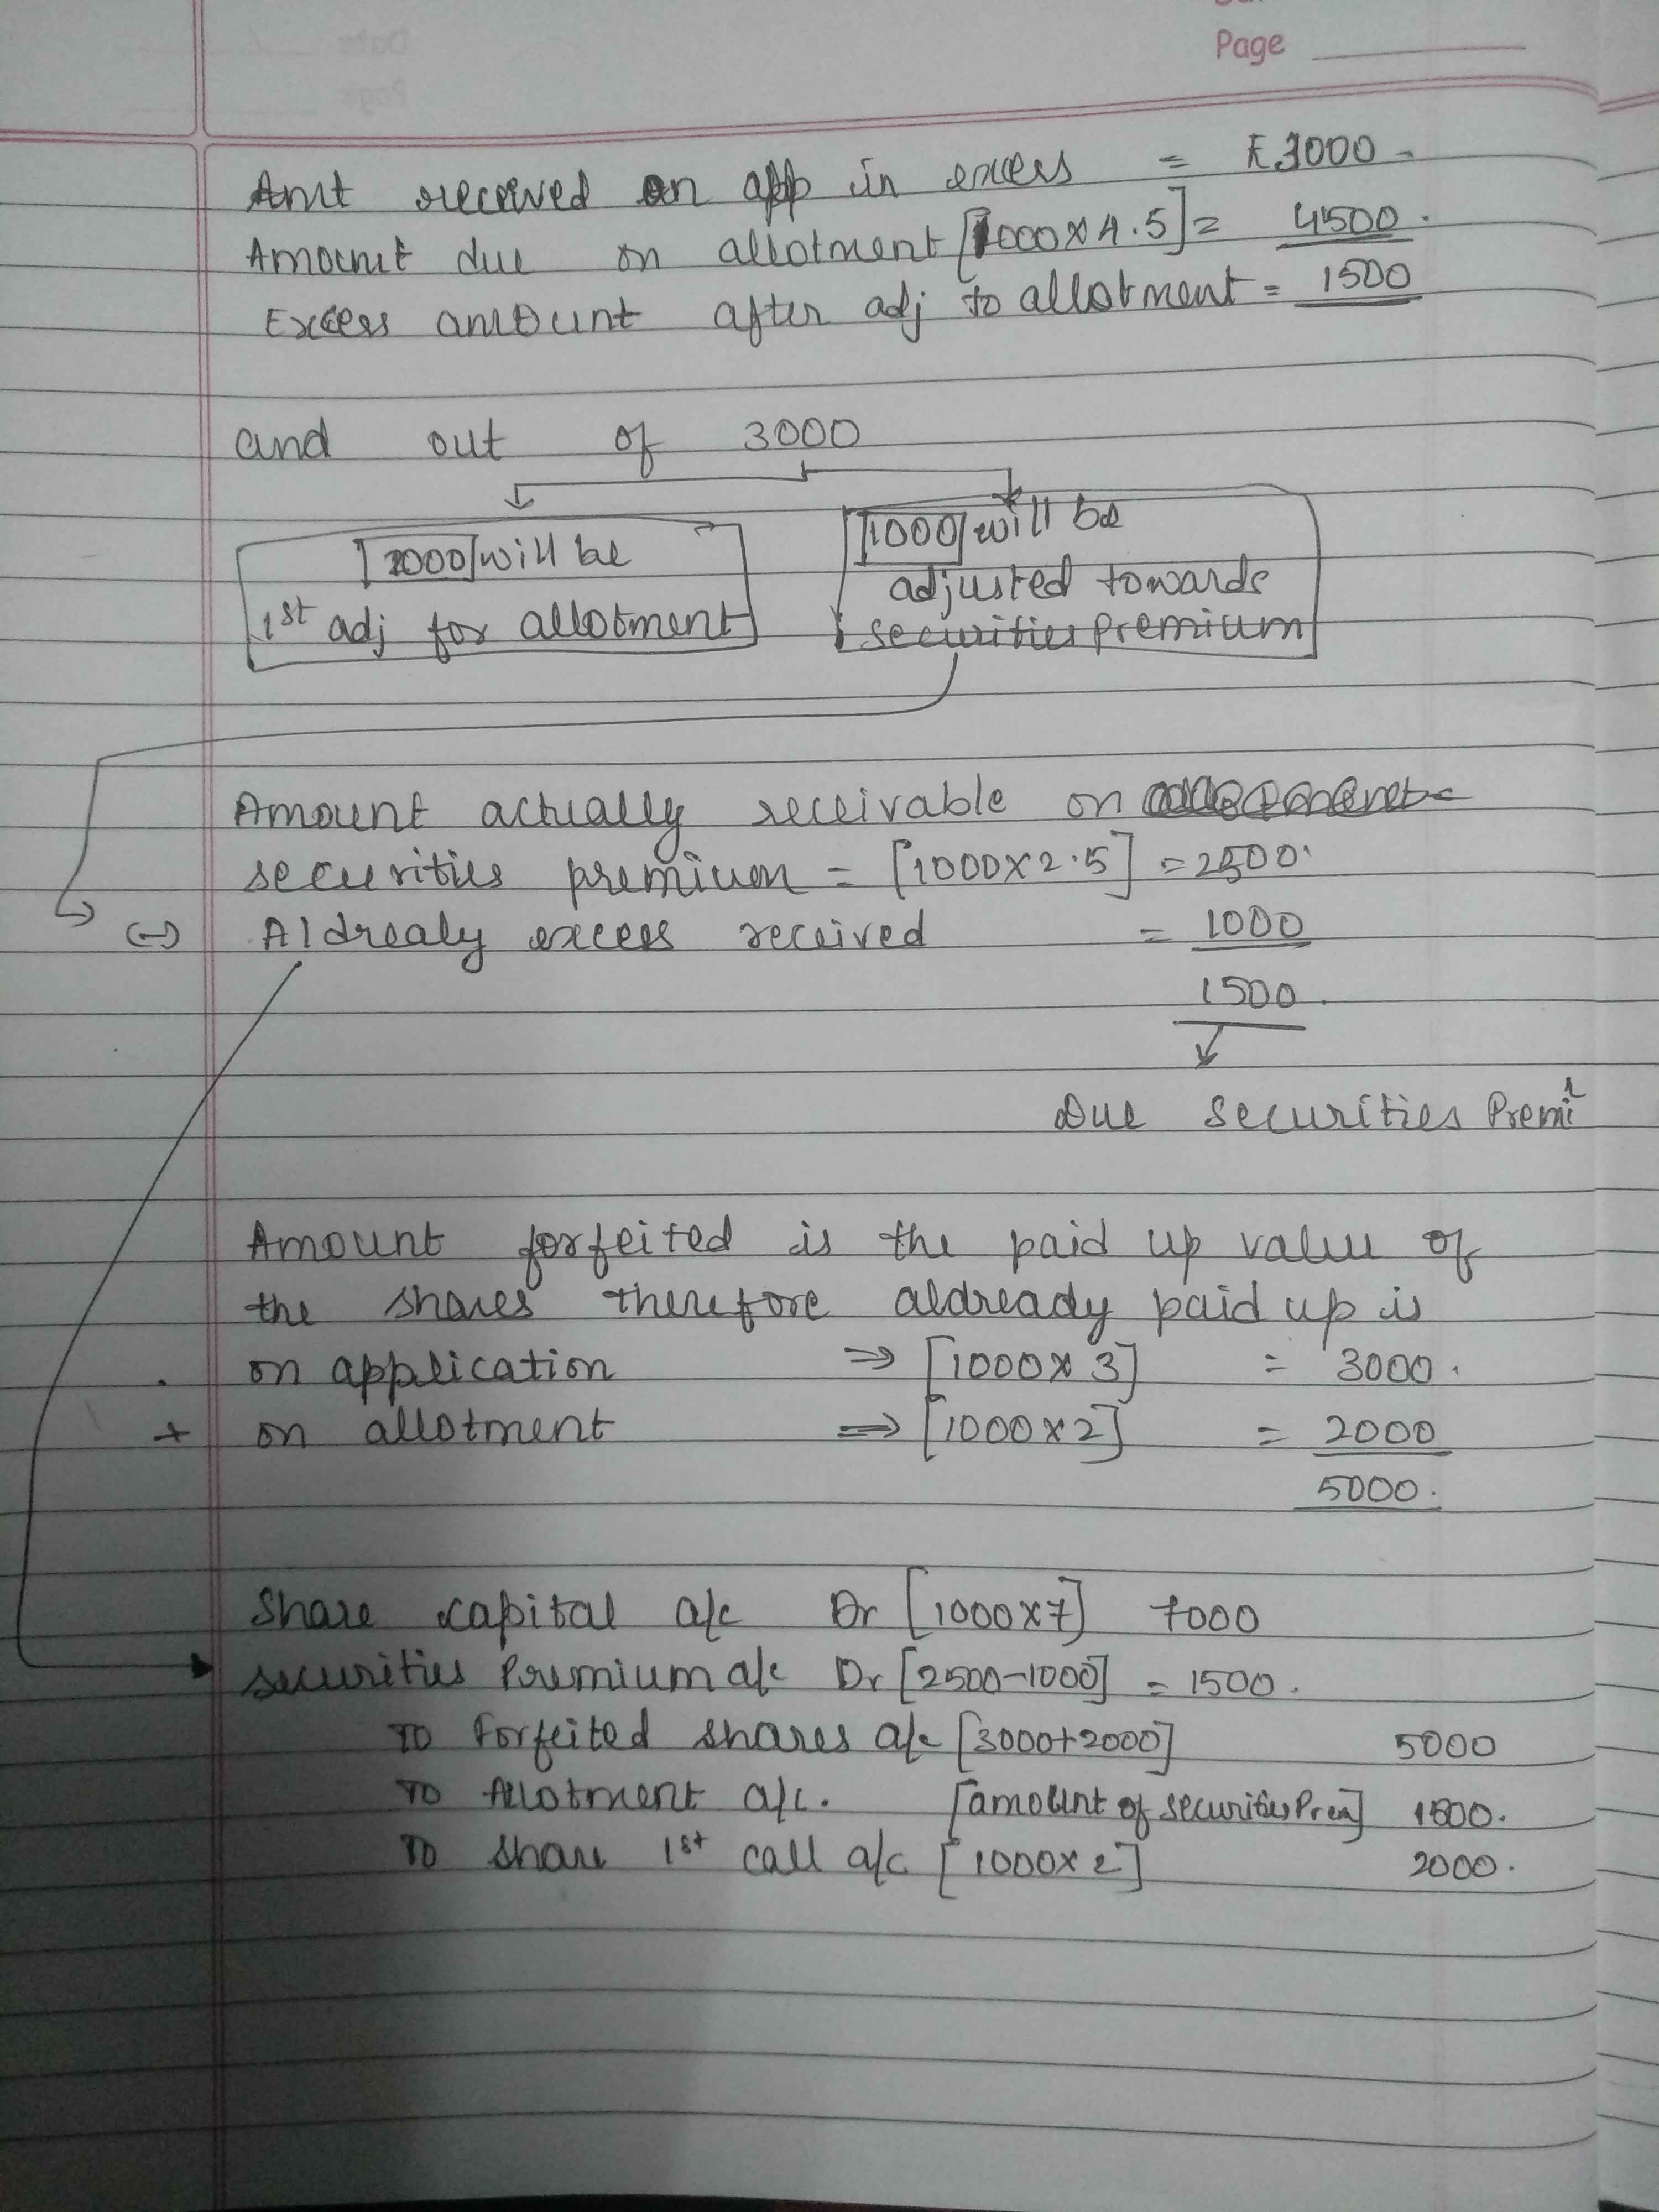 Page
Amt received on app in excess = ₹3000
Amount due on allotment [1000×4.5] = 4500.
Excess amount after adj to allotment = 1500
and out of 3000
2000 will be
1st adj for allotment
1000 will be
adjusted towards
securities premium
Amount actually receivable on
securities premium = [1000×2.5] = 2500.
(-) Aldrealy excess received = 1000
1500.
Due securities Premi
Amount forfeited is the paid up value of
the shares therefore aldready paid up is
on application ⇒ [1000×3] = 3000.
+ on allotment ⇒ [1000×2] = 2000
5000.
Share capital a/c Dr [1000×7] 7000
securities Premium a/c Dr [2500-1000] = 1500.
To Forfeited shares a/c [3000+2000] 5000
To Allotment a/c. [amount of securities Prem] 1500.
To share 1st call a/c [1000×2] 2000.